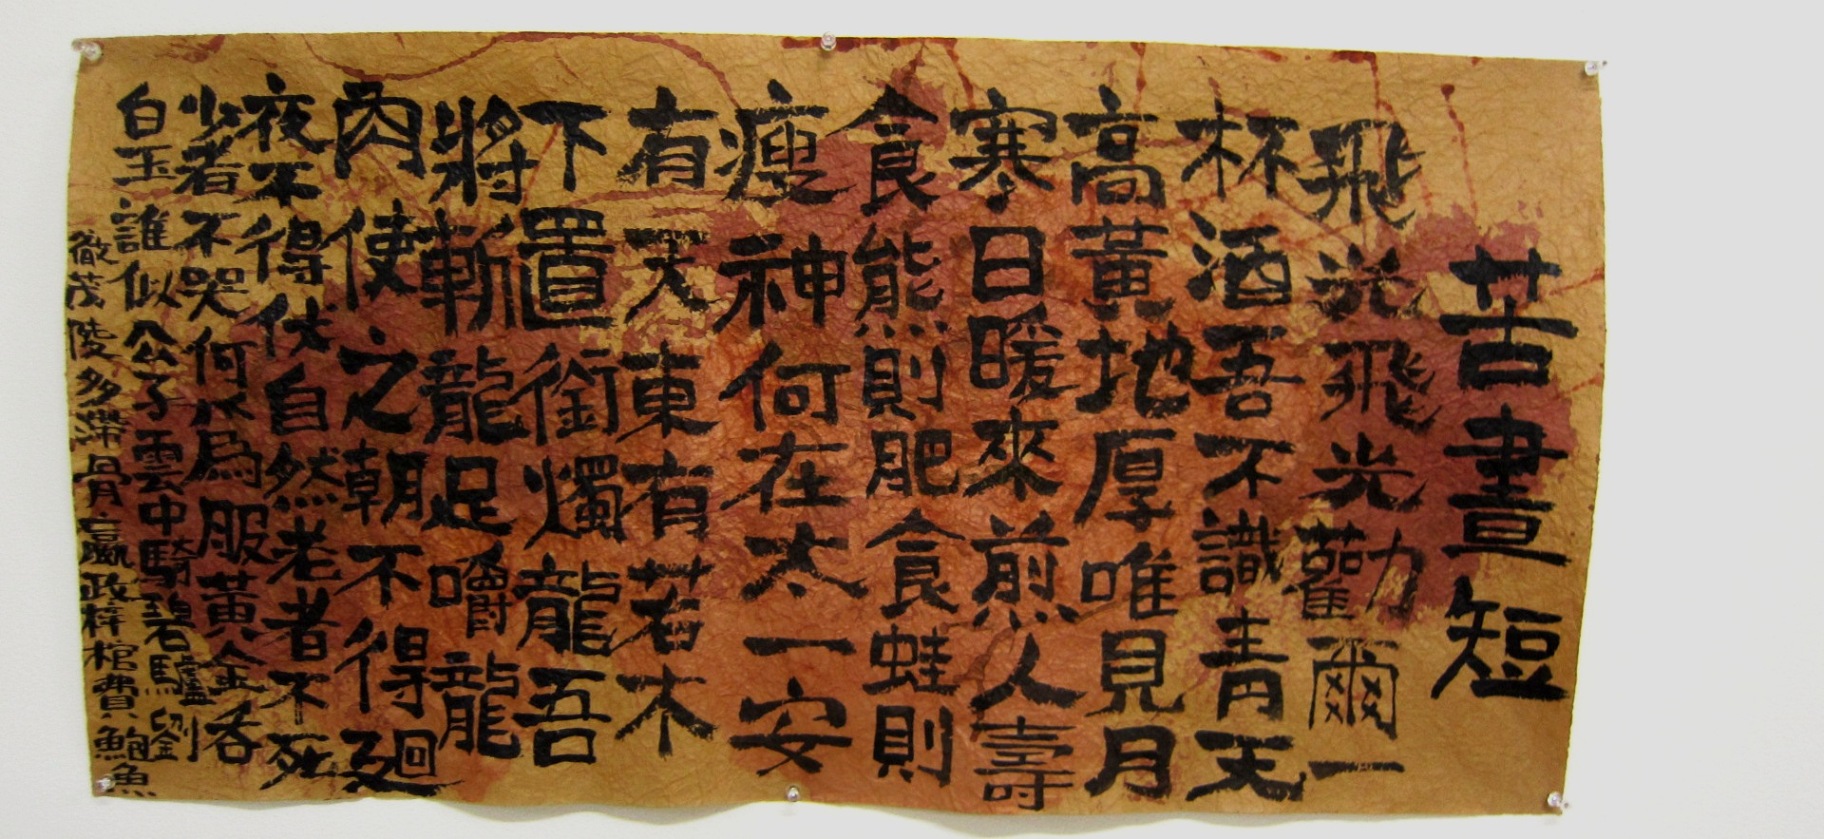 苦晝短
飛光飛光勸爾一
杯酒吾不識青天
高黃地厚唯見月
寒日暖來煎人壽
食熊則肥食蛙則
瘦神何在太一安
有天東有若木
下置銜燭龍吾
將斬龍足嚼龍
肉使之朝不得廻
夜不得伏自然老者不死
少者不哭何爲服黃金吞
白玉誰似公子雲中騎碧驢劉
徹茂陵多滯骨嬴政梓棺費鮑魚